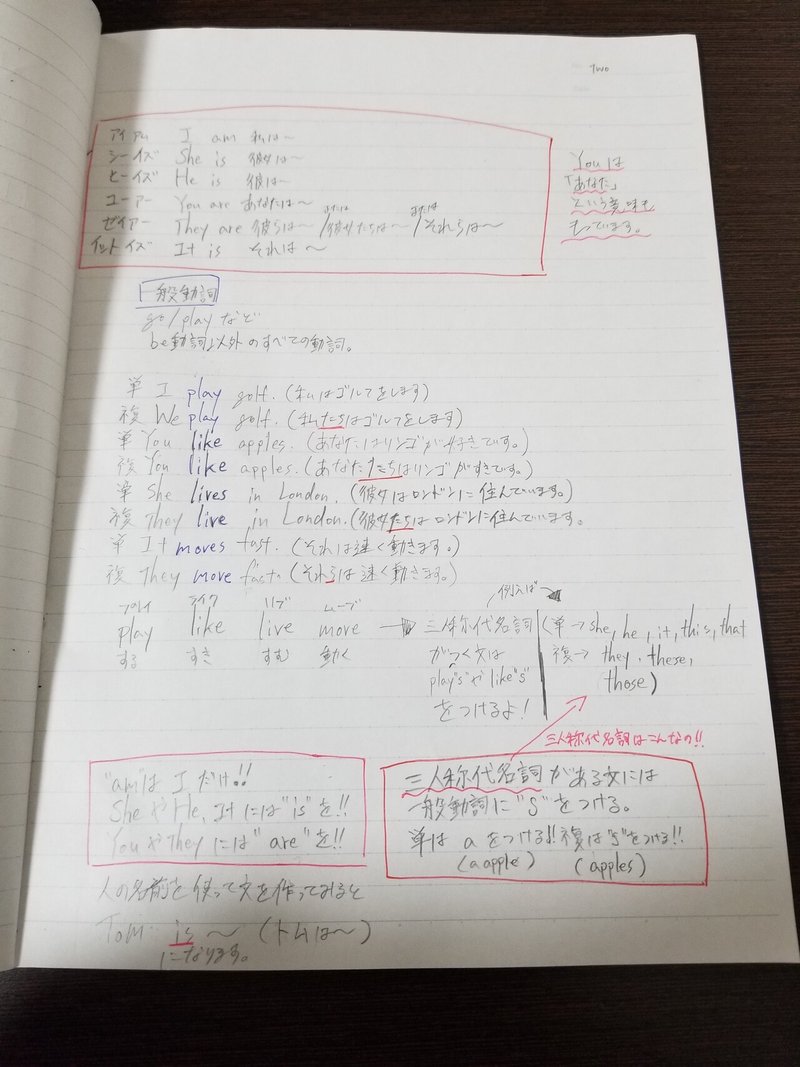 Two
アイアム I am 私は〜
シーイズ She is 彼女は〜
ヒーイズ He is 彼は〜
ユーアー You are あなたは〜
ゼイアー They are 彼らは〜/または彼女たちは〜/またはそれらは〜
イットイズ It is それは〜
Youは
「あなた」
という意味も
もっています。
一般動詞
go/playなど
be動詞以外のすべての動詞。
単 I play golf. (私はゴルフをします)
複 We play golf. (私たちはゴルフをします)
単 You like apples. (あなたはリンゴが好きです。)
複 You like apples. (あなたたちはリンゴがすきです。)
単 She lives in London. (彼女はロンドンに住んでいます。)
複 They live in London. (彼女たちはロンドンに住んでいます。
単 It moves fast. (それは速く動きます。)
複 They move fast. (それらは速く動きます。)
プレイ ライク リブ ムーブ
play like live move → 三人称代名詞
する すき すむ 動く
がつく文は
play"s"や like"s"
をつけるよ!
例えば
(単→she, he, it, this, that
複→ they, these,
those)
三人称代名詞はこんなの!!
"am"は I だけ!!
SheやHe, Itには"is"を!!
YouやTheyには"are"を!!
三人称代名詞がある文には
一般動詞に"S"をつける。
単は aをつける!! 複は"s"をつける!!
(a apple) (apples)
人の名前を使って文を作ってみると
Tom is 〜 (トムは〜)
になります。